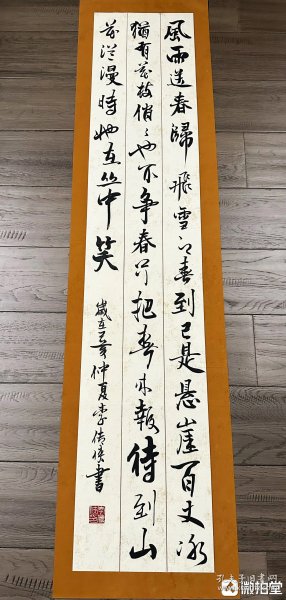 風雨送春歸飛雪迎春到已是懸崖百丈冰
猶有花枝俏々也不争春只把春来報待到山
花烂漫時她在丛中笑
歲在亥仲夏李書
孔夫子旧书网
微拍堂